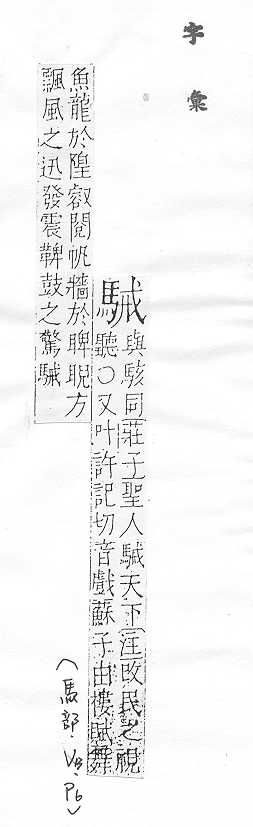 字彙
駴與駭同莊子聖人駴天下注改民之視
聽○又叶許記切音戲蘇子由樓賦舞
魚龍於隍叡閱帆牆於睥睨方
飄風之迅發震鞞鼓之驚駴
〈馬部.V8.P6〉